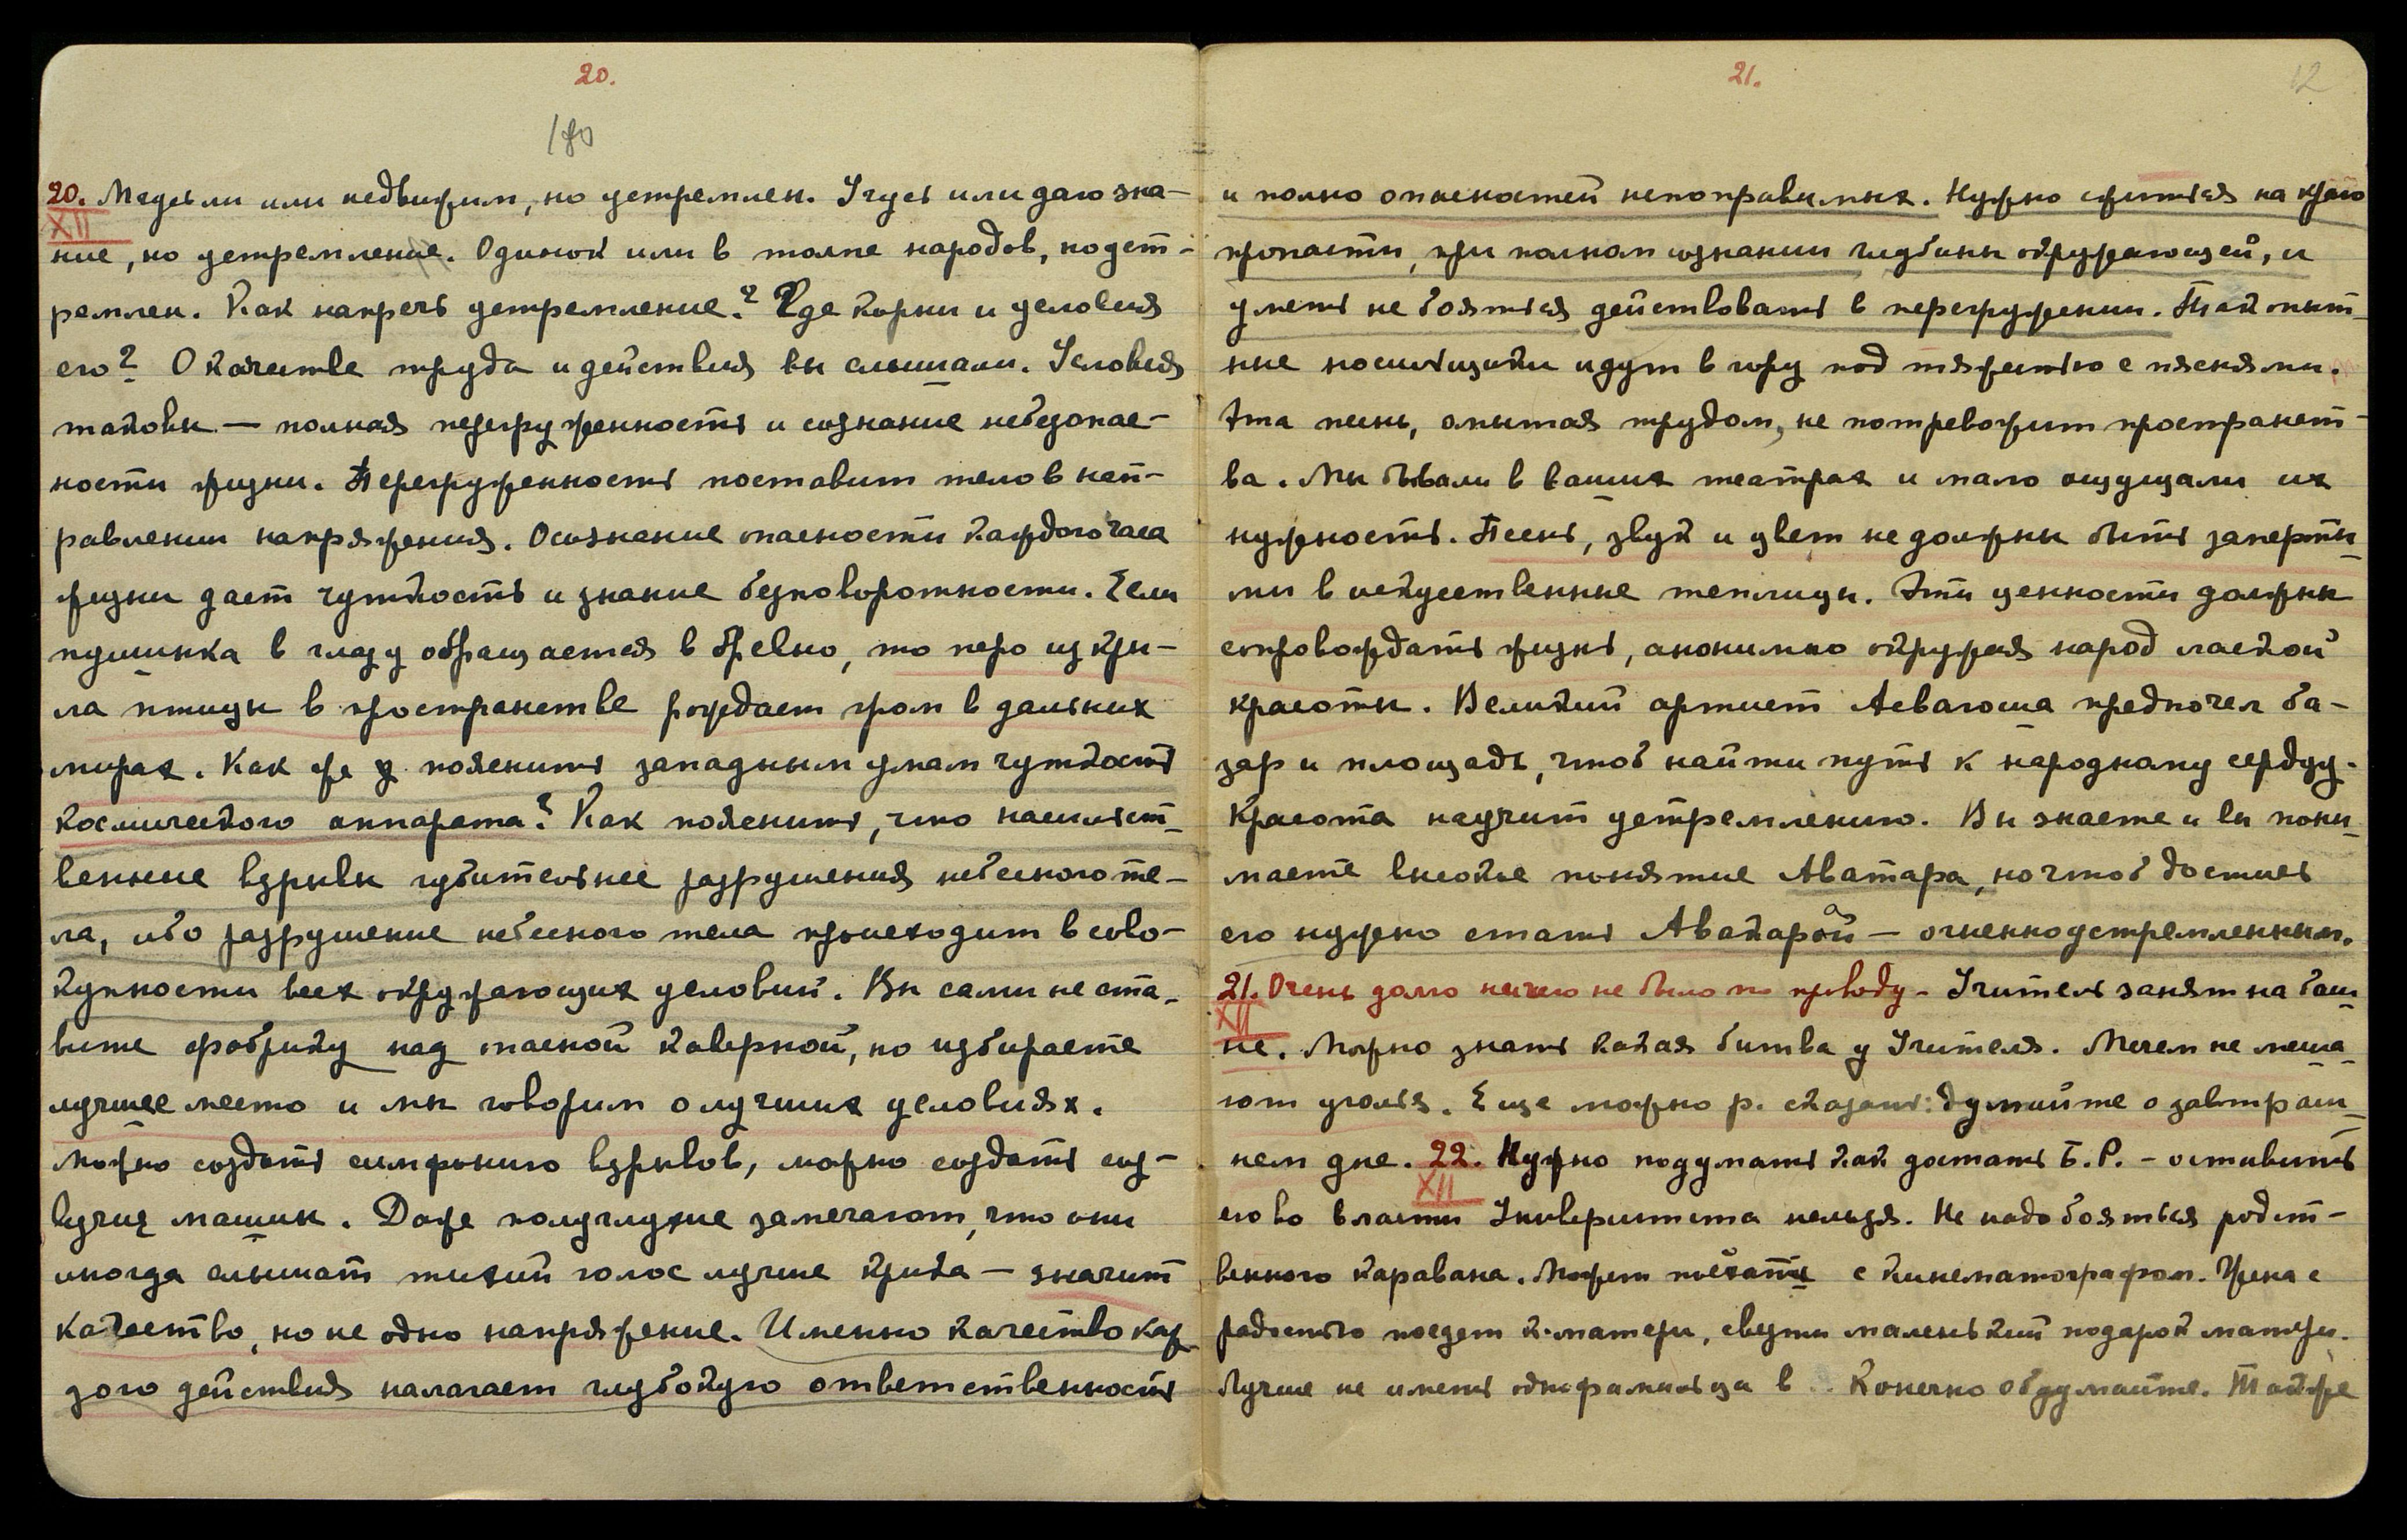 20.
180
20. Медьли или недвижим, но устремлен. Учусь или даю зна-
XII
ние, но устремление. Одинок или в толпе народов, но уст-
ремлен. Как напречь устремление? Где корни и условия
его? О качестве труда и действия вы слышали. Условия
таковы — полная перегруженность и сознание небезопас-
ности жизни. Перегруженность поставит тело в нап-
равлении напряжения. Осознание опасности каждого часа
жизни дает чуткость и знание безповоротности. Если
пушинка в глазу обращается в бревно, то перо из кры-
ла птицы в пространстве рождает гром в дальних
мирах. Как же пояснить западным умам чуткость
космического аппарата? Как пояснить, что насильст-
венные взрывы губительнее разрушения небесного те-
ла, ибо разрушение небесного тела происходит в сово-
купности всех окружающих условий. Вы сами не ста-
вите фабрику над опасной каверной, но избираете
лучшее место и мы говорим о лучших условиях.
Можно создать симфонию взрывов, можно создать соз-
вучия машин. Даже полуглухие замечают, что они
иногда слышат тихий голос лучше крика — значит
качество, но не одно напряжение. Именно качество каж
дого действия налагает глубокую ответственность
21.
12
и полно опасностей непоправимых. Нужно сжиться на краю
пропасти, при полном сознании глубины окружающей, и
уметь не бояться действовать в перегружении. Так опыт-
ные носильщики идут в гору под тяжестью с песнями.
Эта песнь, омытая трудом, не потревожит пространст-
ва. Мы бывали в ваших театрах и мало ощущали их
нужность. Песнь, звук и цвет не должны быть заперты-
ми в искусственные теплицы. Эти ценности должны
сопровождать жизнь, анонимно окружая народ лаской
красоты. Великий артист Асвагоша предпочел ба-
зар и площадь, чтоб найти путь к народному сердцу.
Красота научит устремлению. Вы знаете и вы пони-
маете высокое понятие Аватара, но чтоб достичь
его нужно стать Авакарой — огненноустремленным.
21. Очень долго ничего не было по проводу – Учитель занят на баш-
XII
не. Можно знать какая битва у Учителя. Мечем не меша-
ют уголья. Еще можно р. сказать: думайте о завтраш-
нем дне. 22. Нужно подумать как достать Б.Р. – оставить
XII
его во власти Университета нельзя. Не надо бояться родст-
венного каравана. Может поехать с кинематографом. Жена с
радостью поедет к матери, свезти маленький подарок матери.
Лучше не иметь однофамильца в .. Конечно обдумайте. Также